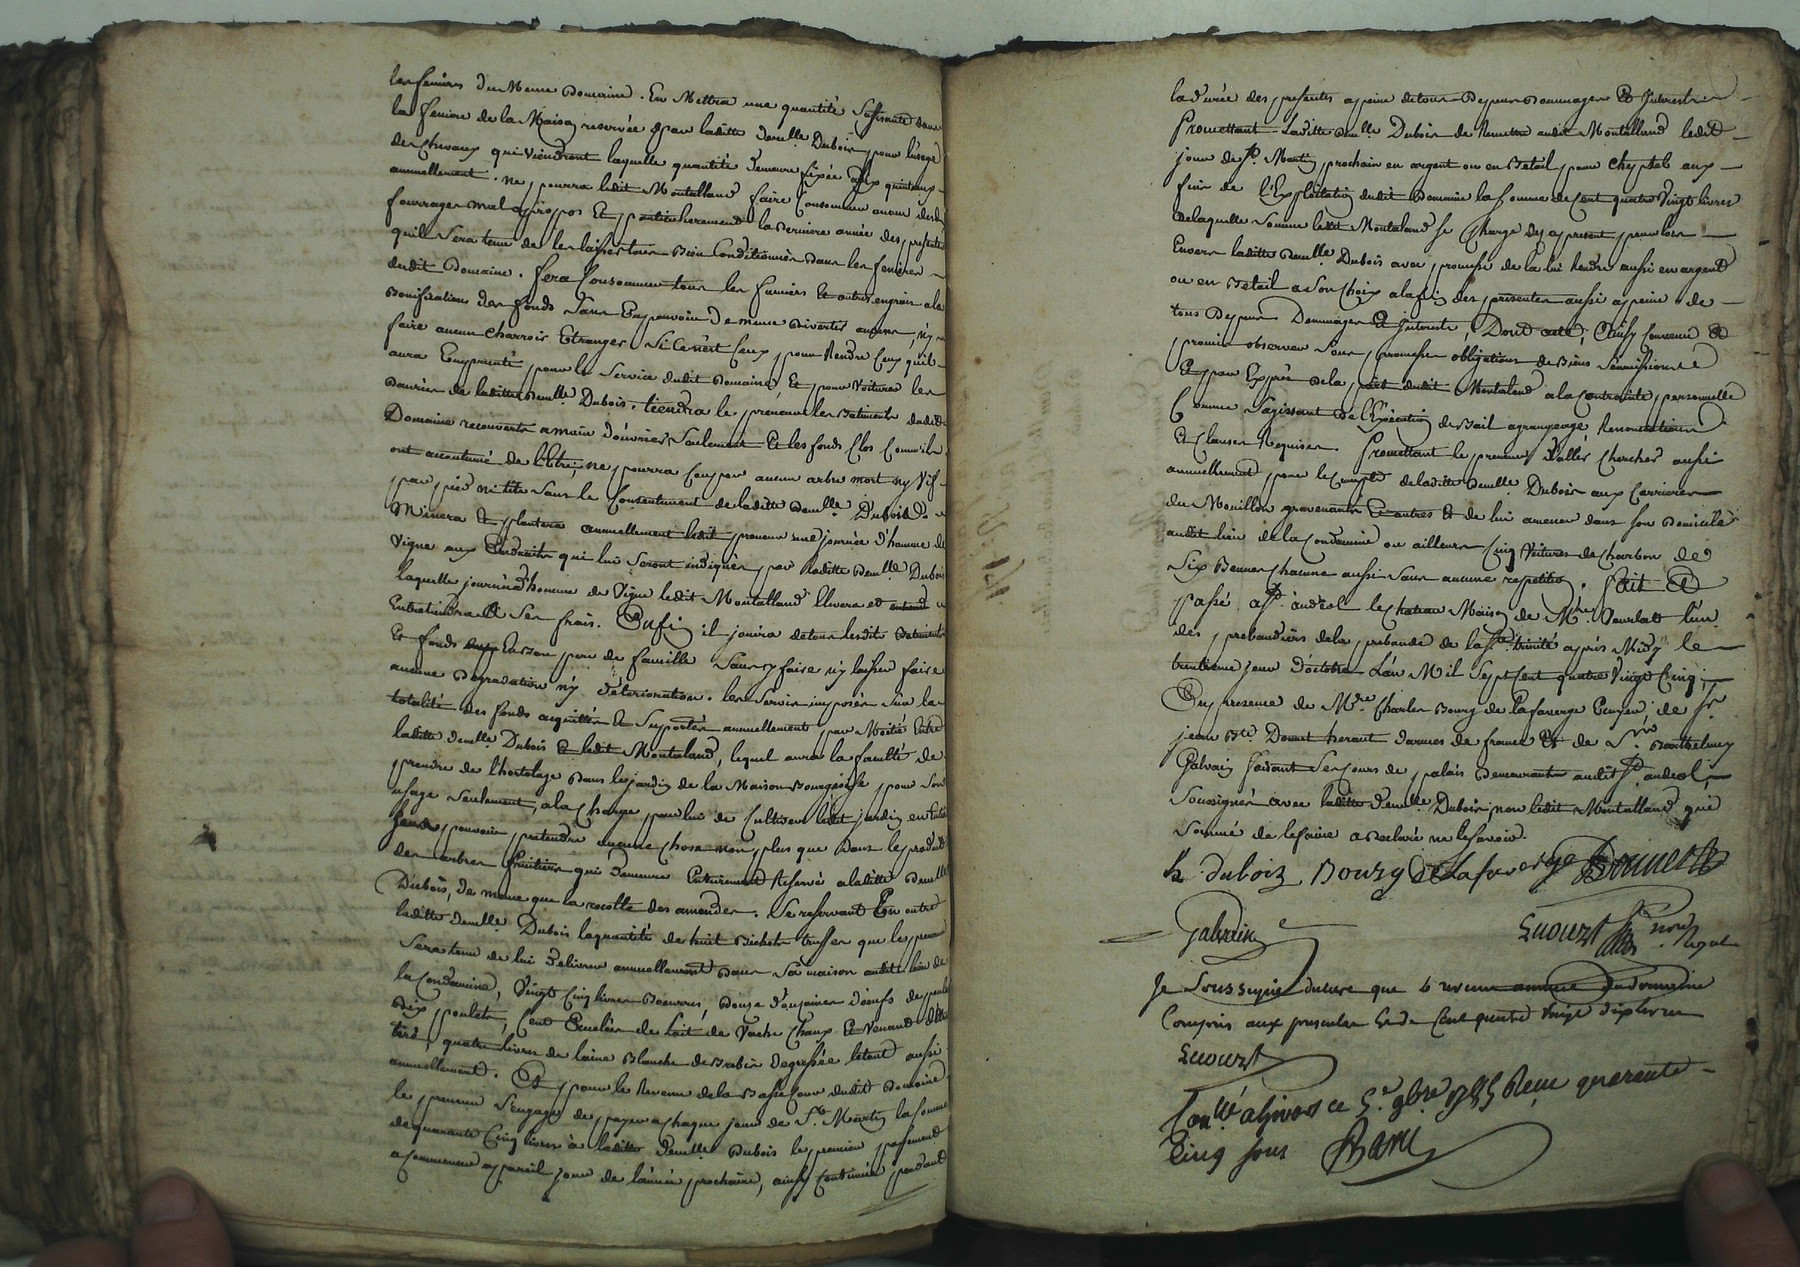 les fenières du Meme Domaine. En Mettra une quantité Suffisante dans
la feniere de la Maison reservée par laditte demelle Dubois pour l'usage
des chevaux qui viendront laquelle quantité demeure fixée a dix quintaux
annuellement. ne pourra ledit Montalland faire Consommer aucun desd.
fourrages mal apropos Et particulierement la Derniere année des presentes
qu'il Sera tenu de les laisser tous Bien Conditionnés Dans les fenieres
dudit Domaine. fera Consommer tous les fumiers Et autres engrais a la
Bonification des fonds Sans En pouvoir de meme Divertir aucuns, n'y
faire aucun charrois Etranger Si Ce n'est Ceux pour Rendre Ceux qu'il
aura Empruntés pour le Service dudit Domaine, Et pour Voiturer les
Danrées de laditte Demlle Dubois. tiendra le preneur les Batiments dudit
Domaine recouverts a main d'ouvrier Seulement Et les fonds Clos Comme ils
ont accoutumé de l'etre; ne pourra Couper aucun arbre mort ny Vif
par pied ni tete Sans le Consentement de laditte Demlle Dubois
Minera Et plantera annuellement ledit preneur une journée d'homme de
Vigne aux Endroits qui lui Seront indiqués par laditte Demlle Dubois
laquelle journée d'homme de Vigne ledit Montalland Elevera et
Entretiendra a Ses frais. Enfin il jouira de tous lesdits Batiments
Et fonds En bon pere de famille Sans y faire n'y laisser faire
aucune Degradation n'y deterioration. les Servis imposés Sur la
totalité des fonds acquittés et Supportés annuellement par Moitié Entre
laditte demelle Dubois Et ledit Montaland, lequel aura la faculté de
prendre de l'hortolage Dans le jardin de la Maison Bourgeoise pour Son
usage Seulement, a la Charge par lui de Cultiver ledit jardin en
Sans pouvoir pretendre aucune Chose non plus que Dans le produit
des arbres fruitiers qui demeure Entierement Reservé a laditte Demlle
Dubois, de meme que la recolte des amandes. Se reservant En outre
laditte demelle Dubois la quantité de huit Bichets truffes que le preneur
Sera tenu de lui delivrer annuellement Dans Sa maison audit lieu de
la Condamine, Vingt Cinq livres Beurres, Douze Douzaines d'oeufs de poule
Dix poulets, Cent Ecuelées de lait de Vache Chaux Et Venant
, quatre livres de laine Blanche de Brebis degressée le tout aussi
annuellement. Et pour le Revenu de la Basse Cour dudit Domaine
le preneur S'engage de payer a chaque jour de St. Martin la somme
de quarante Cinq livres à laditte Demlle Dubois le premier payement
a Commencer a pareil jour de l'année prochaine, ainsy Continuer pendant
la durée des presentes a peine de tous Depens Dommages Et Interests
Promettant Laditte Demlle Dubois de Remettre audit Montalland ledit
jour de St. Martin prochain en argent ou en Betail pour Cheptel aux
fins de l'Exploitation dudit Domaine la somme de Cent quatre Vingt livres
de laquelle Somme ledit Montaland se Charge des a present pour lors
Envers laditte Demlle Dubois avec promesse de la lui Rendre aussi en argent
ou en Betail a Son Choix a la fin des presentes aussi a peine de
tous Depens Dommages Et Interests, Dont acte, Ainsy Convenu Et
promis observer Sous promesses obligations de Biens Soumissions
Et par Exprès de la part dudit Montaland a la Contrainte personnelle
Comme S'agissant de l'Execution de Bail a grangeage Renonciations
Et Clauses Requises. Promettant le preneur d'aller Chercher aussi
annuellement pour le Compte de laditte Demlle Dubois aux Carrieres
du Mouillon Et autres Et de lui amener dans Son Domicile
audit lieu de la Condamine ou ailleurs Cinq Voitures de Charbon de
Six Bennes Chacune aussi Sans aucune repetition. fait Et
Passé a St. andeol le chateau Maison de Mre l'un
des prebandiers de la prebande de la Ste. trinité après Midy le
trentieme jour d'octobre L'an Mil Sept Cent quatre Vingt Cinq;
En presence de Mre Charles Bourg de Lafaverge Ecuyer, de Sr.
jean Bte heraut d'armes de france Et de Sr. Barthelemy
Galvain faisant Ses Cours de palais Demeurants audit St. andeol
Soussignés avec laditte Demelle Dubois non ledit Montalland qui
Sommé de le faire a Declaré ne le Savoir.
h. dubois Bourg de Lafaverge
Galvain
Royal
Je Soussigné declare que le revenu annuel du domaine
Compris aux presentes Cent quatre Vingt dix livres
Conllé a Givors ce 5e 9bre 1785 Reçu quarante
Cinq sous